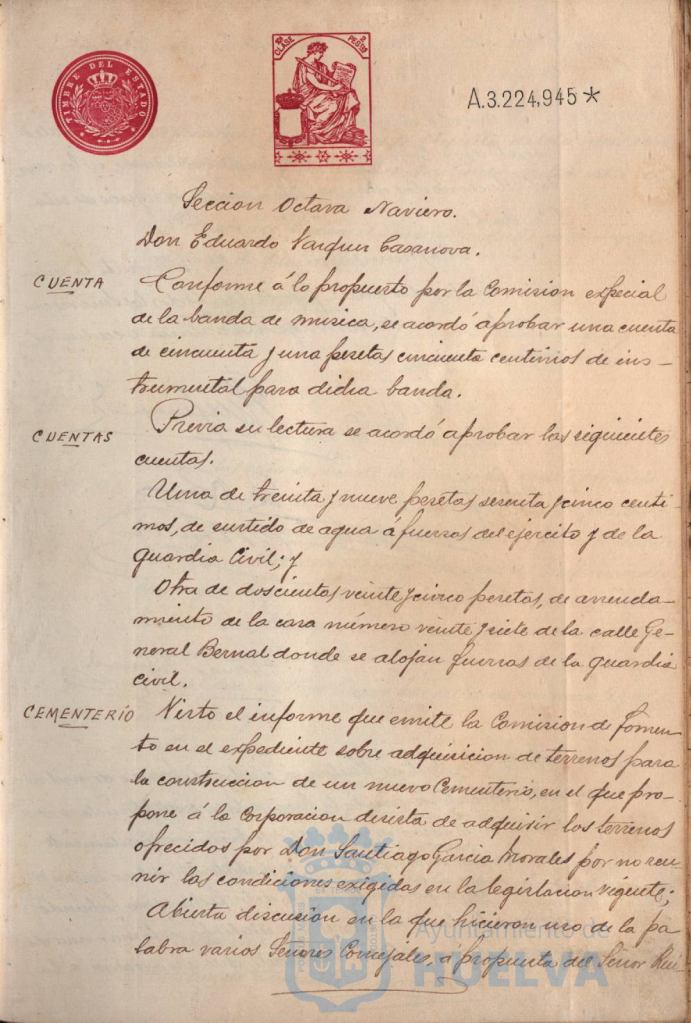 TIMBRE DEL ESTADO
CLASE
PESTAS
A.3.224,945*
Seccion Octava Naviero.
Don Eduardo Vazquez Casanova.
CUENTA
Conforme á lo propuesto por la Comision especial
de la banda de musica, se acordó aprobar una cuenta
de cincuenta y una pesetas cincuenta centimos de ins-
trumental para dicha banda.
CUENTAS
Previa su lectura se acordó aprobar las siguientes
cuentas.
Una de treinta y nueve pesetas sesenta y cinco centi
mos, de surtido de agua á fuerzas del ejercito y de la
guardia Civil; y
Otra de doscientos veinte y cinco pesetas, de arrenda-
miento de la casa número veinte y siete de la calle Ge-
neral Bernal donde se alojan fuerzas de la guardia
civil.
CEMENTERIO
Visto el informe que emite la Comision de fomen
to en el expediente sobre adquisicion de terrenos para
la construccion de un nuevo Cementerio, en el que pro-
pone á la Corporacion desista de adquirir los terrenos
ofrecidos por Don Santiago Garcia Morales por no reu-
nir las condiciones exigidas en la legislacion vigente;
Abierta discusion en la que hicieron uso de la pa
labra varios Señores Concejales, á propuesta del Señor Rui
Ayuntamiento de
HUELVA